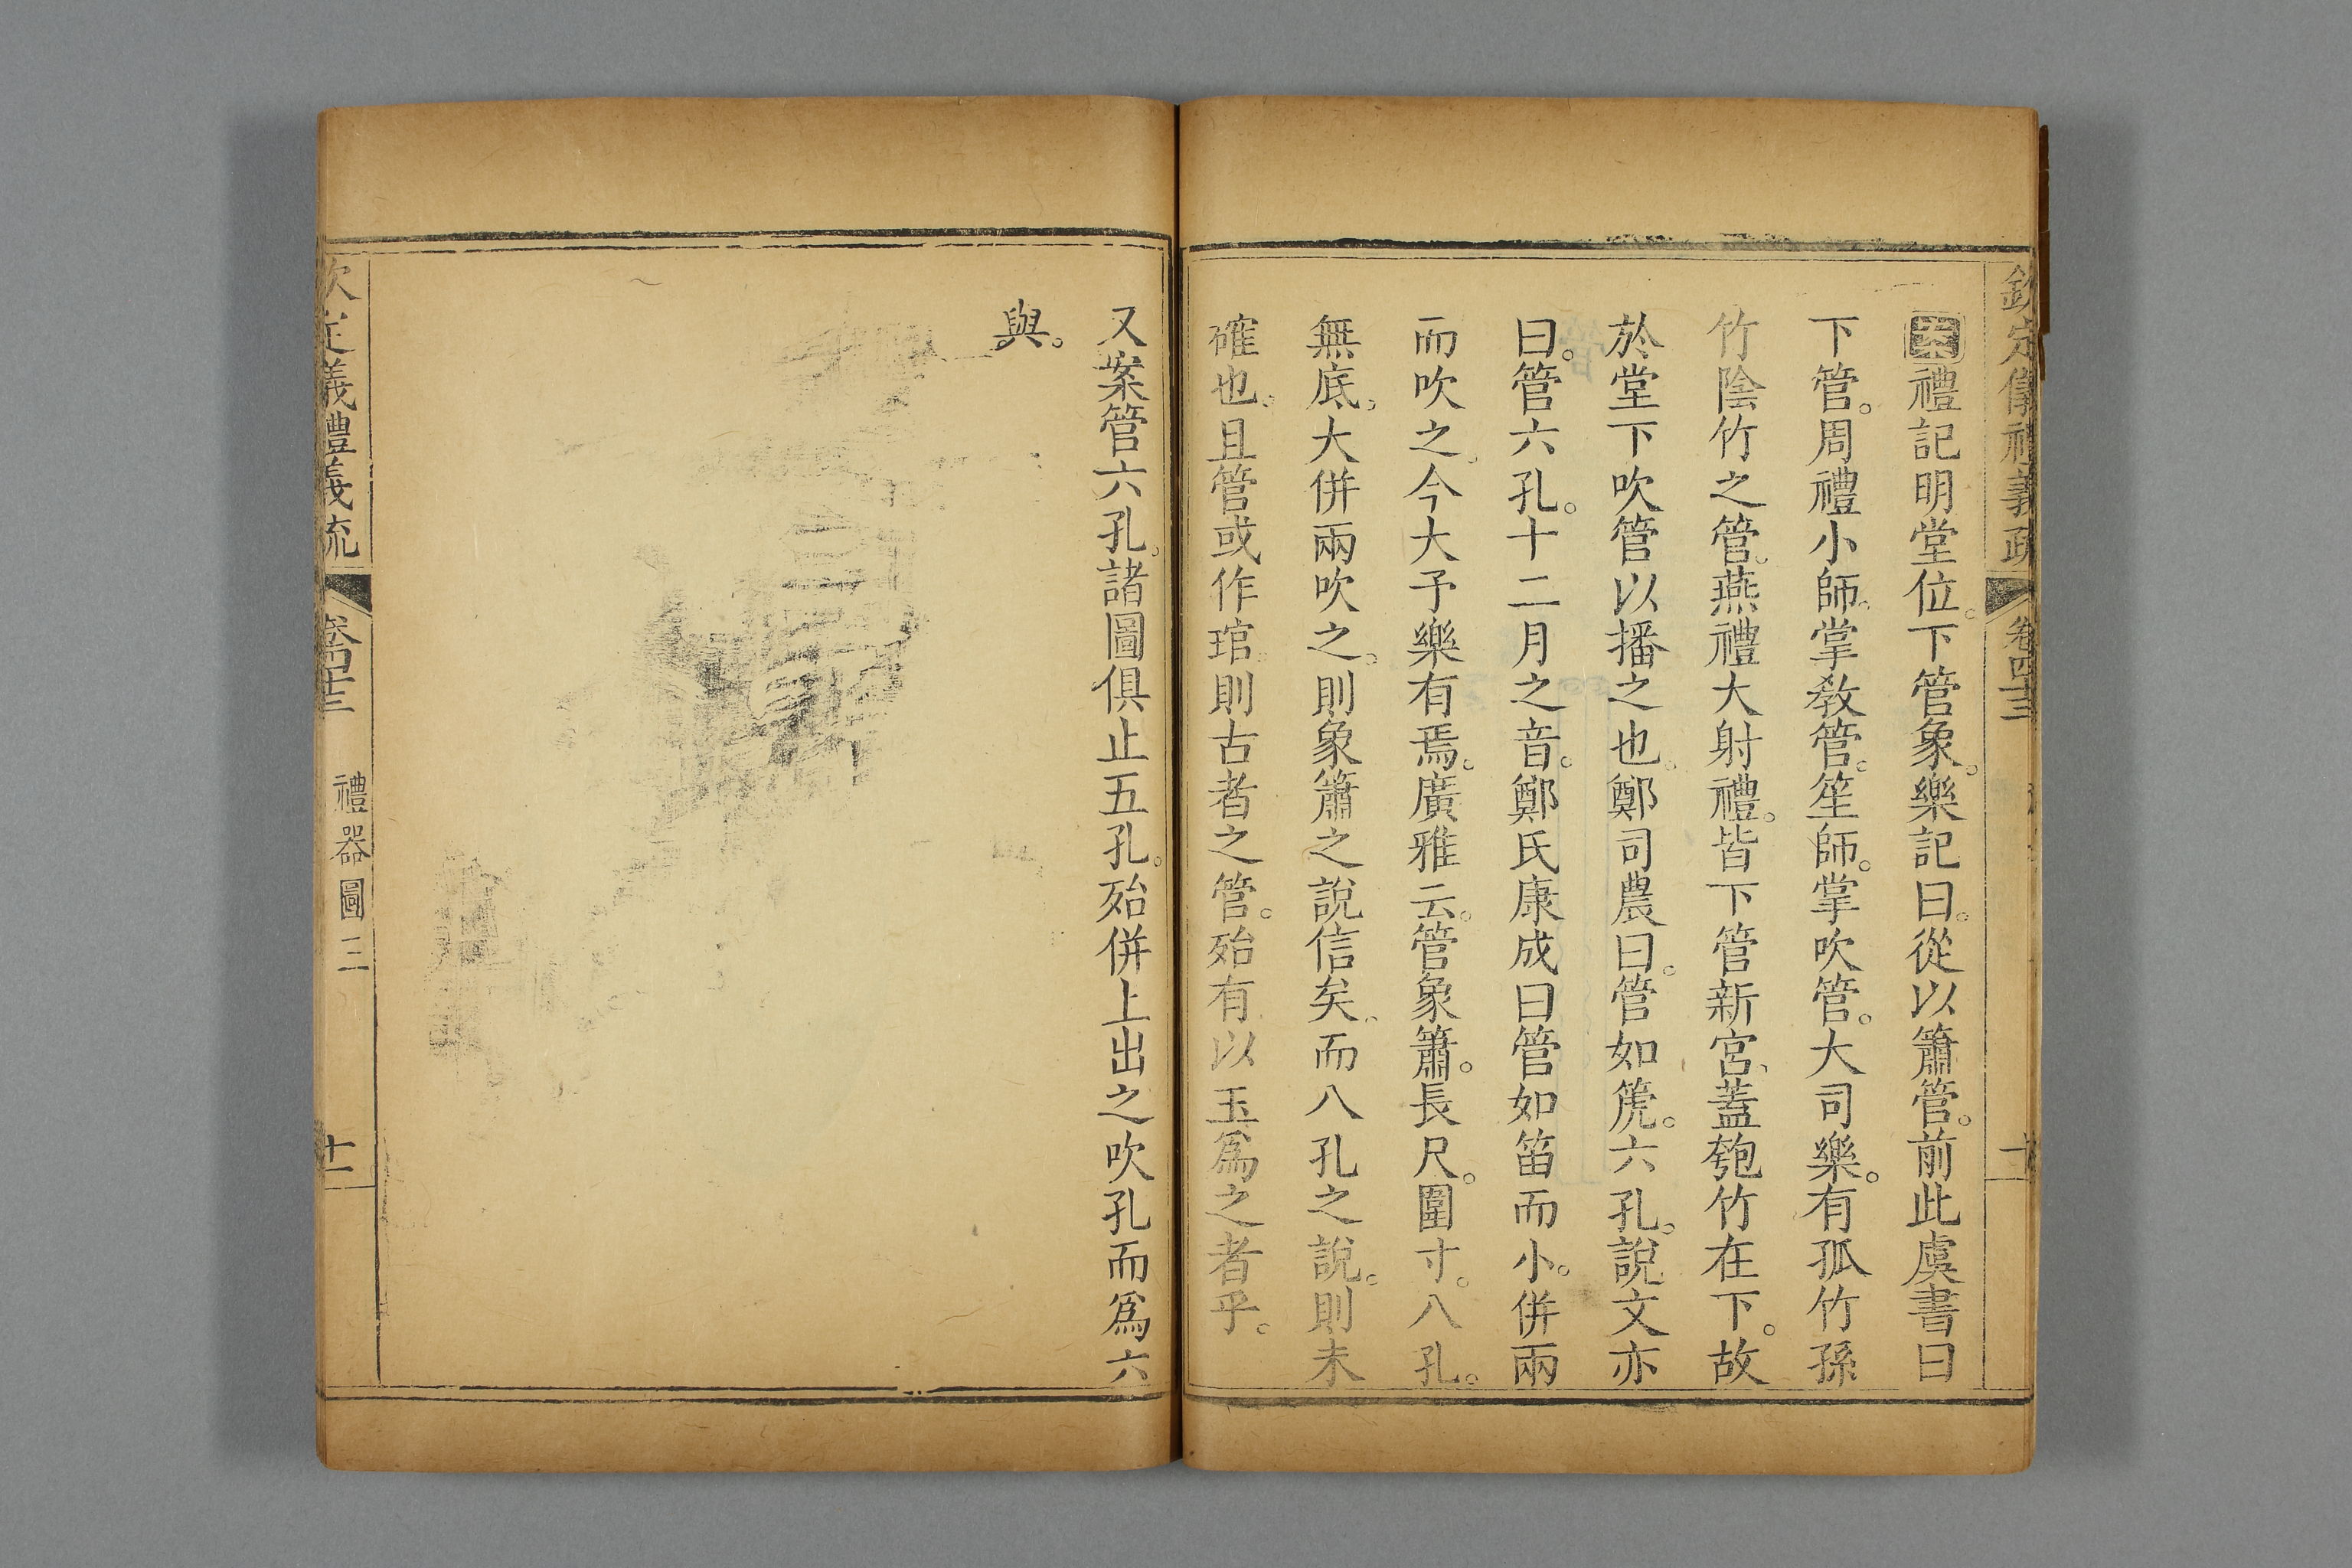 欽定儀禮義疏 卷四十三
案禮記明堂位。下管象。樂記曰。從以簫管。前此虞書曰
下管。周禮小師。掌敎管。笙師。掌吹管。大司樂。有孤竹孫
竹陰竹之管。燕禮大射禮。皆下管新宮、蓋匏竹在下。故
於堂下吹管以播之也。鄭司農曰。管如篪。六孔。說文亦
曰。管六孔。十二月之音。鄭氏康成曰管如笛而小。併兩
而吹之、今大予樂有焉。廣雅云。管象簫。長尺。圍寸。八孔。
無底。大併兩吹之。則象簫之說信矣、而八孔之說。則未
確也。且管或作琯。則古者之管。殆有以玉爲之者乎。
又案管六孔。諸圖俱止五孔。殆併上出之吹孔而爲六
與。
欽定儀禮義疏 卷四十三 禮器圖三 十一